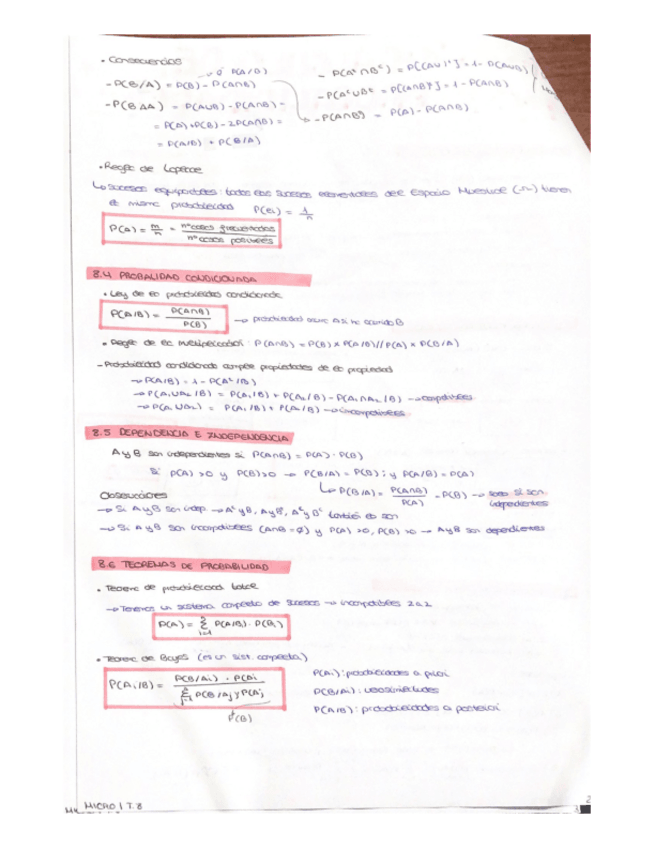 • Consecuencias
→ o P(A/B)
- P(B/A) = P(B) - P(A∩B)
- P(B Δ A) = P(A∪B) - P(A∩B) =
= P(A) + P(B) - 2P(A∩B) =
= P(A/B) + P(B/A)
- P(Aᶜ∩Bᶜ) = P[(A∪B)ᶜ] = 1 - P(A∪B)
- P(Aᶜ∪Bᶜ = P[(A∩B)ᶜ] = 1 - P(A∩B)
- P(A∩B) = P(A) - P(A∩B)
• Regla de Laplace
↳ Sucesos equiprobables: todos los sucesos elementales del Espacio Muestral (Ω) tienen
la misma probabilidad P(ei) = 1/n
P(A) = m/n = nº casos favorables / nº casos posibles
8.4 PROBALIDAD CONDICIONADA
• Ley de la probabilidad condicionada
P(A/B) = P(A∩B) / P(B) → probabilidad ocurra A si ha ocurrido B
• Regla de la multiplicación: P(A∩B) = P(B) x P(A/B) // P(A) x P(B/A)
- Probabilidad condicionada cumple propiedades de la propiedad
→ P(A/B) = 1 - P(Aᶜ/B)
→ P(A₁∪A₂/B) = P(A₁/B) + P(A₂/B) - P(A₁∩A₂/B) → compatibles
→ P(A₁∪A₂) = P(A₁/B) + P(A₂/B) → incompatibles
8.5 DEPENDENCIA E INDEPENDENCIA
A y B son independientes si P(A∩B) = P(A) · P(B)
Si P(A) > 0 y P(B) > 0 → P(B/A) = P(B); y P(A/B) = P(A)
↳ P(B/A) = P(A∩B) / P(A) = P(B) → solo si son independientes
Observaciones
→ Si A y B son indep → Aᶜ y B, A y Bᶜ, Aᶜ y Bᶜ también lo son
→ Si A y B son incompatibles (A∩B = ∅) y P(A) > 0, P(B) > 0 → A y B son dependientes
8.6 TEOREMAS DE PROBABILIDAD
• Teorema de probabilidad total
→ Tenemos un sistema completo de sucesos → incompatibles 2 a 2
P(A) = Σ i=1 P(A/Bi) · P(Bi)
• Teorema de Bayes (es un sist. completo)
P(Ai/B) = P(B/Ai) · P(Ai / Σ j=1 P(B/Aj) y P(Aj
P(B)
P(Ai): probabilidades a priori
P(B/Ai): verosimilitudes
P(Ai/B): probabilidades a posteriori
MICRO | T.8
2